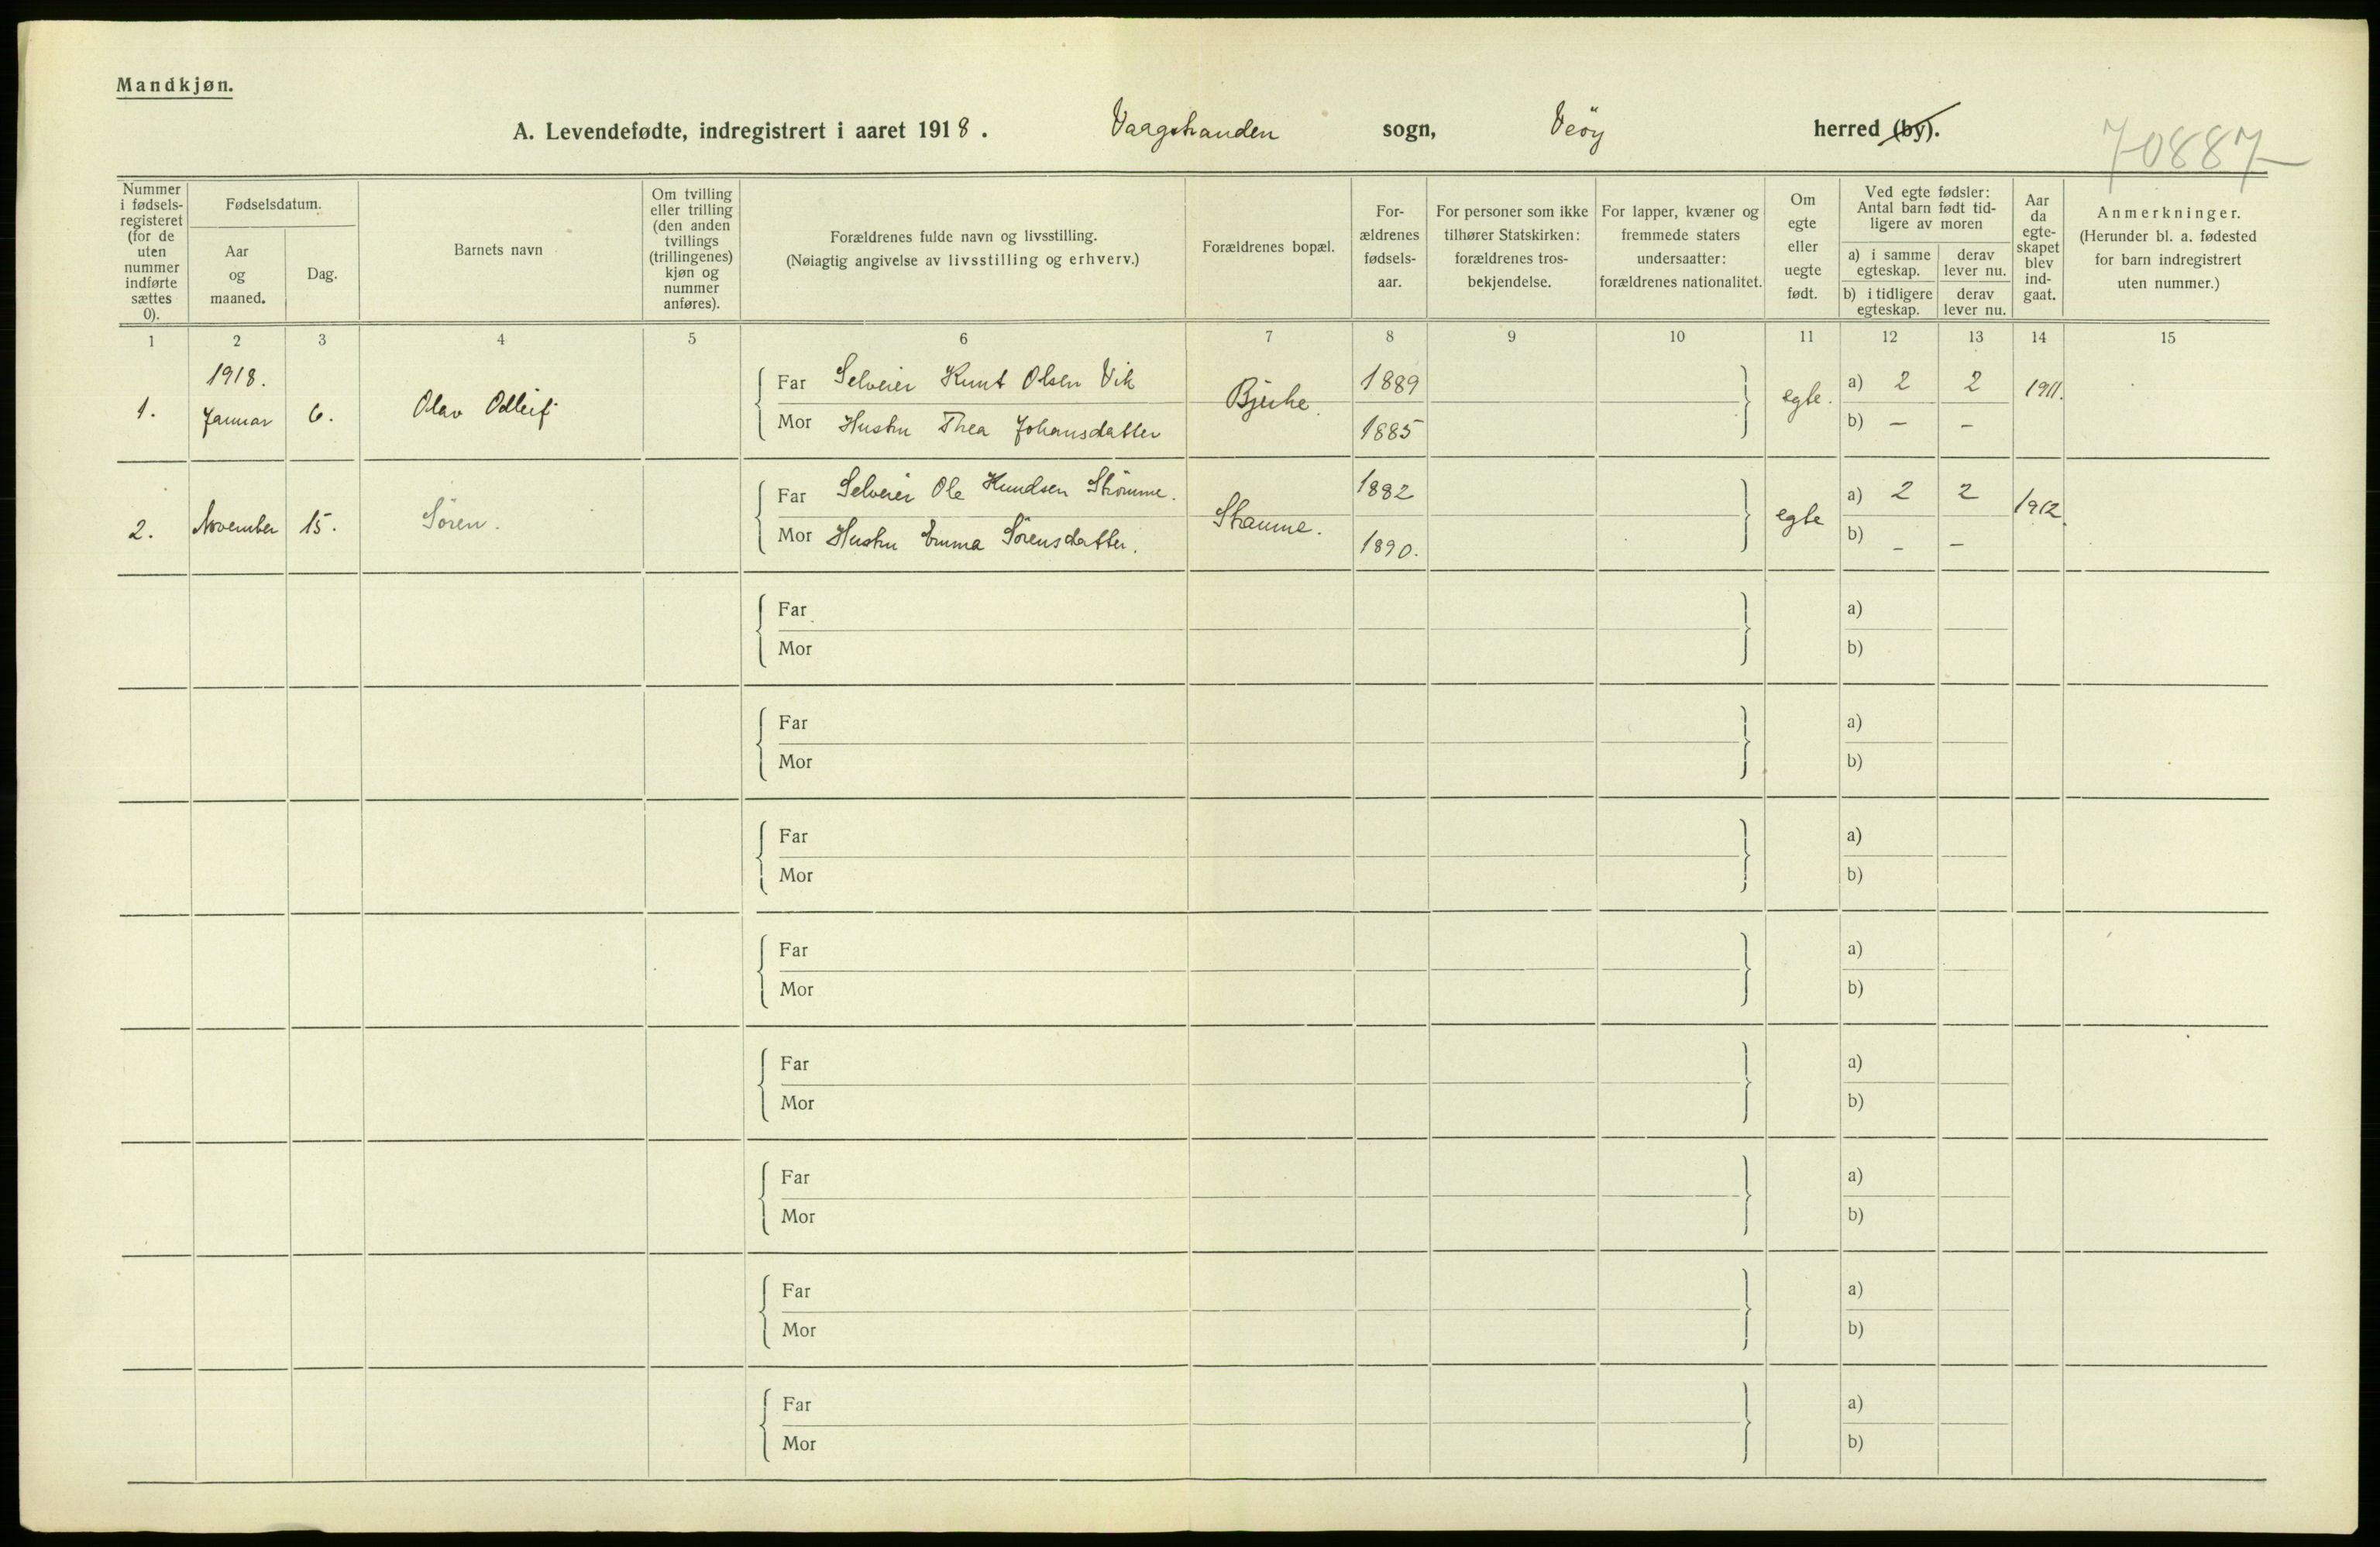 Mandkjøn.
A. Levendefødte, indregistrert i aaret 1918. Vaagstranden sogn, Veöy herred (by).
70887
Nummer i fødsels-registeret (for de uten nummer indførte sættes 0).
Fødselsdatum.
Aar og maaned.
Dag.
Barnets navn
Om tvilling eller trilling (den anden tvillings (trillingenes) kjøn og nummer anføres).
Forældrenes fulde navn og livsstilling.
(Nøiagtig angivelse av livsstilling og erhverv.)
Forældrenes bopæl.
For-ældrenes fødsels-aar.
For personer som ikke tilhører Statskirken: forældrenes tros-bekjendelse.
For lapper, kvæner og fremmede staters undersaatter: forældrenes nationalitet.
Om egte eller uegte født.
Ved egte fødsler: Antal barn født tid-ligere av moren
a) i samme egteskap.
derav lever nu.
b) i tidligere egteskap.
derav lever nu.
Aar da egte-skapet blev ind-gaat.
Anmerkninger.
(Herunder bl. a. fødested for barn indregistrert uten nummer.)
1 2 3 4 5 6 7 8 9 10 11 12 13 14 15
1. 1918. Januar 6. Olav Odleif
Far Selveier Knut Olsen Vik
Mor Hustru Thea Johansdatter
1889
1885
egte.
a) 2 2
b) – –
1911.
2. November 15. Sören.
Far Selveier Ole Knudsen Strömme.
Mor Hustru Emma Sörensdatter.
1882
1890.
egte
a) 2 2
b) – –
1912.
Far a)
Mor b)
Far a)
Mor b)
Far a)
Mor b)
Far a)
Mor b)
Far a)
Mor b)
Far a)
Mor b)
Far a)
Mor b)
Far a)
Mor b)